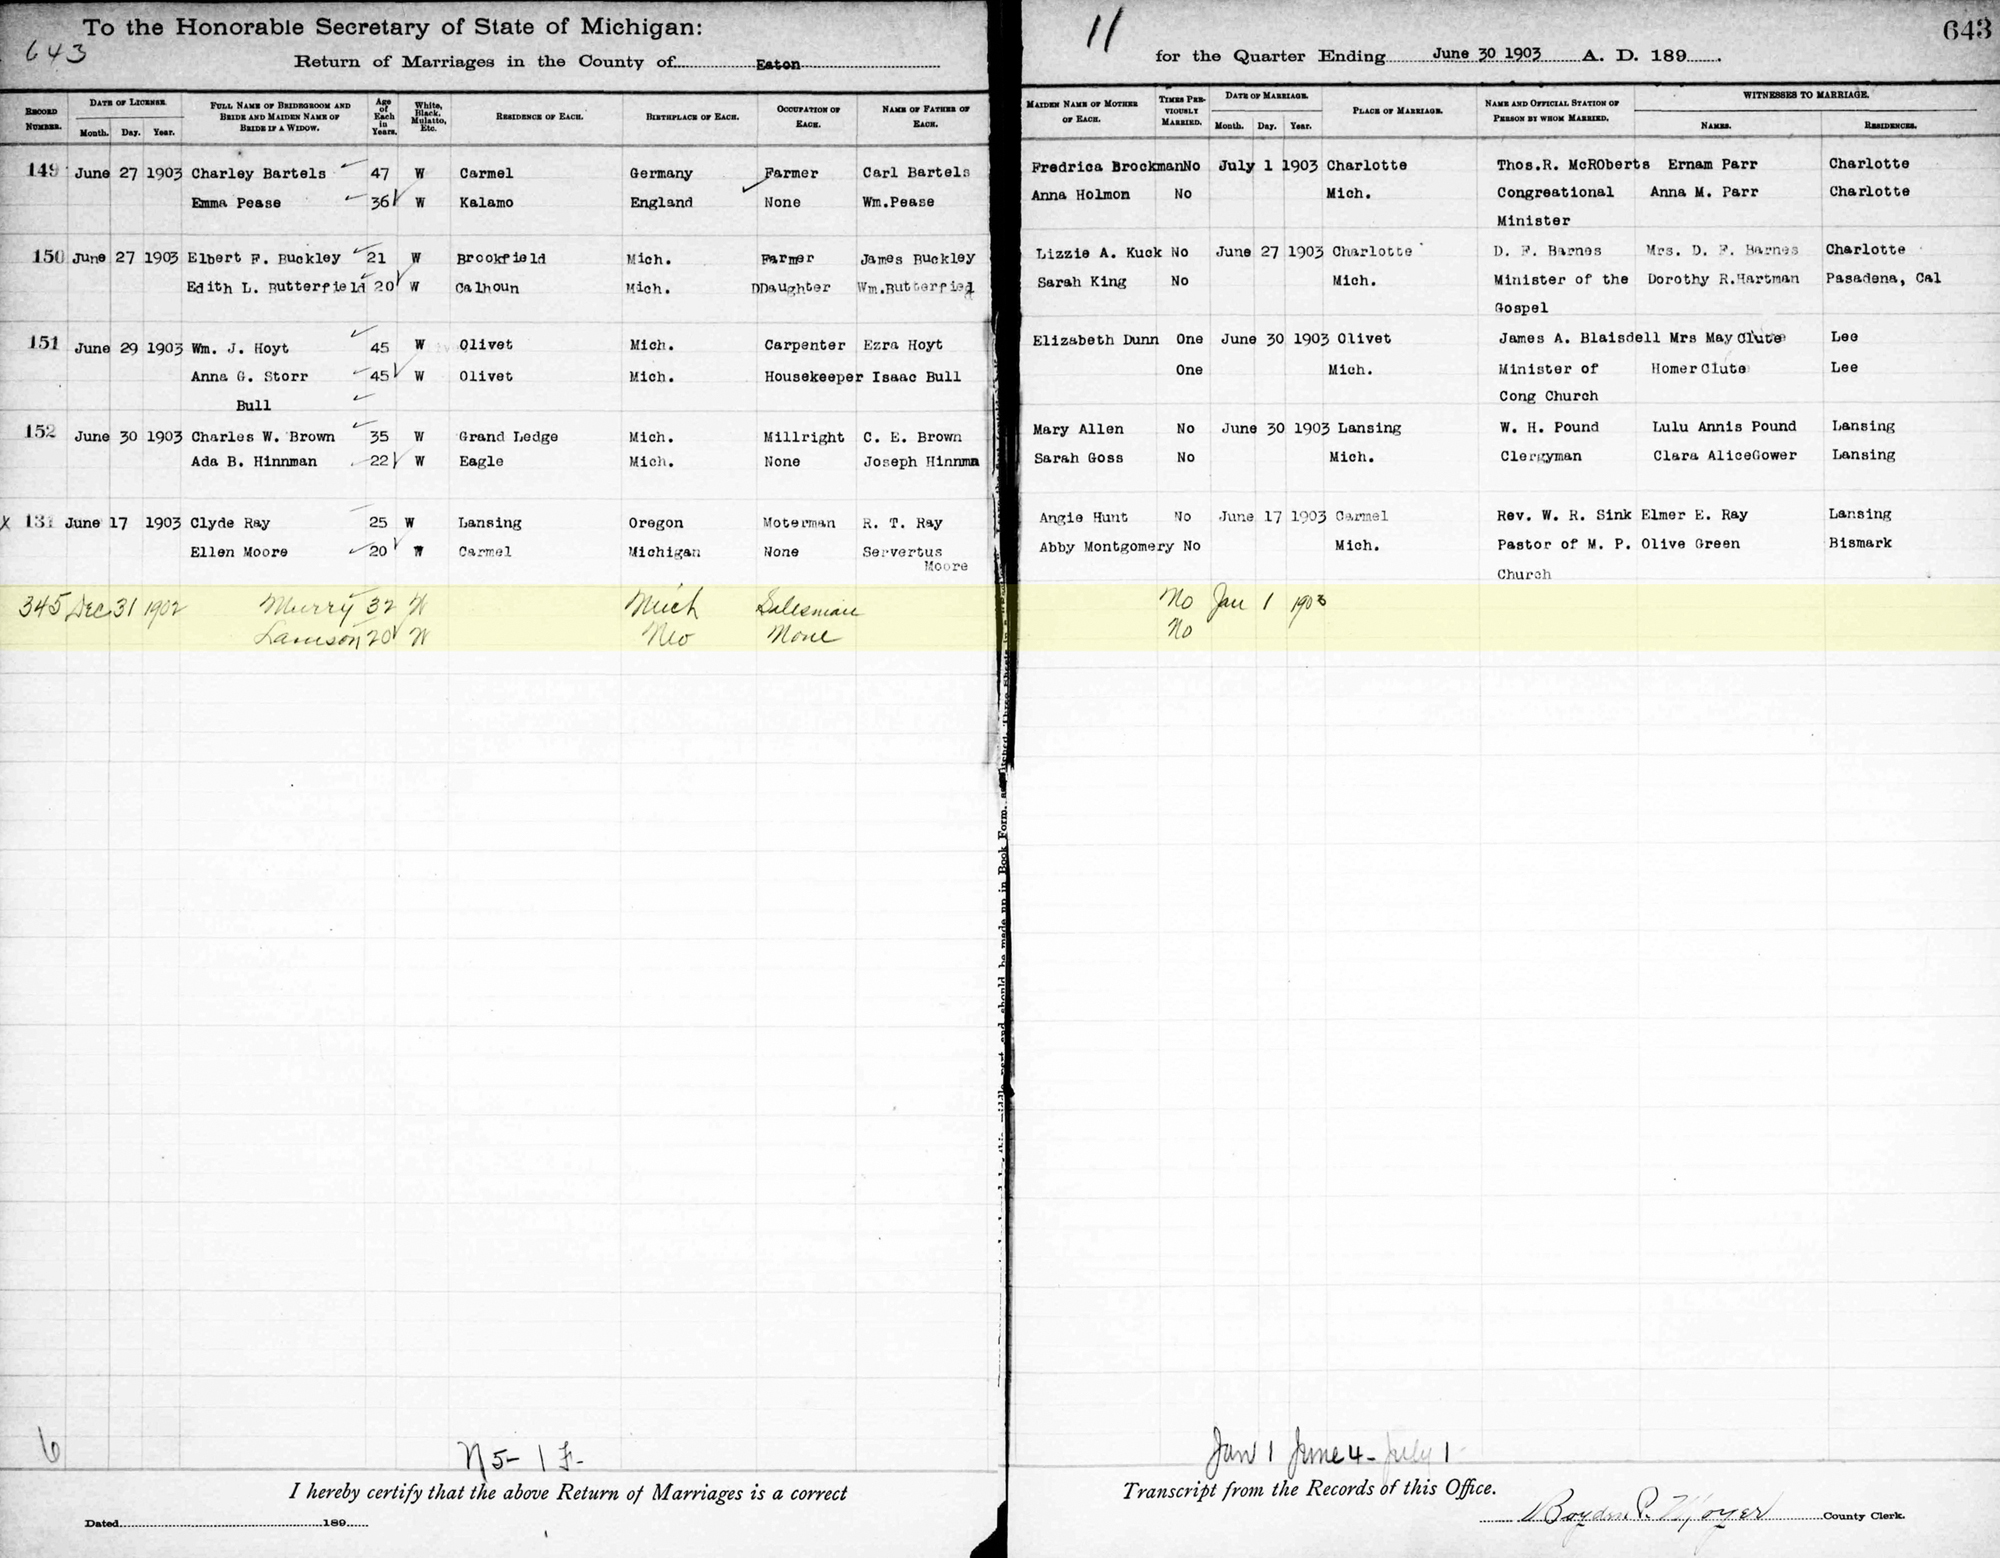 To the Honorable Secretary of State of Michigan:
643
Return of Marriages in the County of Eaton
RECORD NUMBER. DATE OF LICENSE. Month. Day. Year. FULL NAME OF BRIDEGROOM AND BRIDE AND MAIDEN NAME OF BRIDE IF A WIDOW. Age of Each in Years. White, Black, Mulatto, Etc. RESIDENCE OF EACH. BIRTHPLACE OF EACH. OCCUPATION OF EACH. NAME OF FATHER OF EACH.
149 June 27 1903 Charley Bartels 47 W Carmel Germany Farmer Carl Bartels
Emma Pease 36 W Kalamo England None Wm.Pease
150 June 27 1903 Elbert F. Buckley 21 W Brookfield Mich. Farmer James Buckley
Edith L. Butterfield 20 W Calhoun Mich. DDaughter Wm.Butterfied
151 June 29 1903 Wm. J. Hoyt 45 W Olivet Mich. Carpenter Ezra Hoyt
Anna G. Storr 45 W Olivet Mich. Housekeeper Isaac Bull
Bull
152 June 30 1903 Charles W. Brown 35 W Grand Ledge Mich. Millright C. E. Brown
Ada B. Hinnman 22 W Eagle Mich. None Joseph Hinnma
X 131 June 17 1903 Clyde Ray 25 W Lansing Oregon Moterman R. T. Ray
Ellen Moore 20 W Carmel Michigan None Servertus
Moore
345 Dec 31 1902 Murry 32 W Mich Salesman
Lamson 20 W None
6
N 5- 1 F-
I hereby certify that the above Return of Marriages is a correct
Dated 189
11
643
for the Quarter Ending June 30 1903 A. D. 189
MAIDEN NAME OF MOTHER OF EACH. TIMES PREVIOUSLY MARRIED. DATE OF MARRIAGE. Month. Day. Year. PLACE OF MARRIAGE. NAME AND OFFICIAL STATION OF PERSON BY WHOM MARRIED. WITNESSES TO MARRIAGE. NAMES. RESIDENCES.
Fredrica Brockman No July 1 1903 Charlotte Thos.R. McROberts Ernam Parr Charlotte
Anna Holmon No Mich. Congreational Anna M. Parr Charlotte
Minister
Lizzie A. Kuck No June 27 1903 Charlotte D. F. Barnes Mrs. D. F. Barnes Charlotte
Sarah King No Mich. Minister of the Dorothy R.Hartman Pasadena, Cal
Gospel
Elizabeth Dunn One June 30 1903 Olivet James A. Blaisdell Mrs May Clute Lee
One Mich. Minister of Homer Clute Lee
Cong Church
Mary Allen No June 30 1903 Lansing W. H. Pound Lulu Annis Pound Lansing
Sarah Goss No Mich. Clergyman Clara AliceGower Lansing
Angie Hunt No June 17 1903 Carmel Rev. W. R. Sink Elmer E. Ray Lansing
Abby Montgomery No Mich. Pastor of M. P. Olive Green Bismark
Church
No Jan 1 1903
No
Jan 1 June 4- July 1
Transcript from the Records of this Office.
County Clerk.